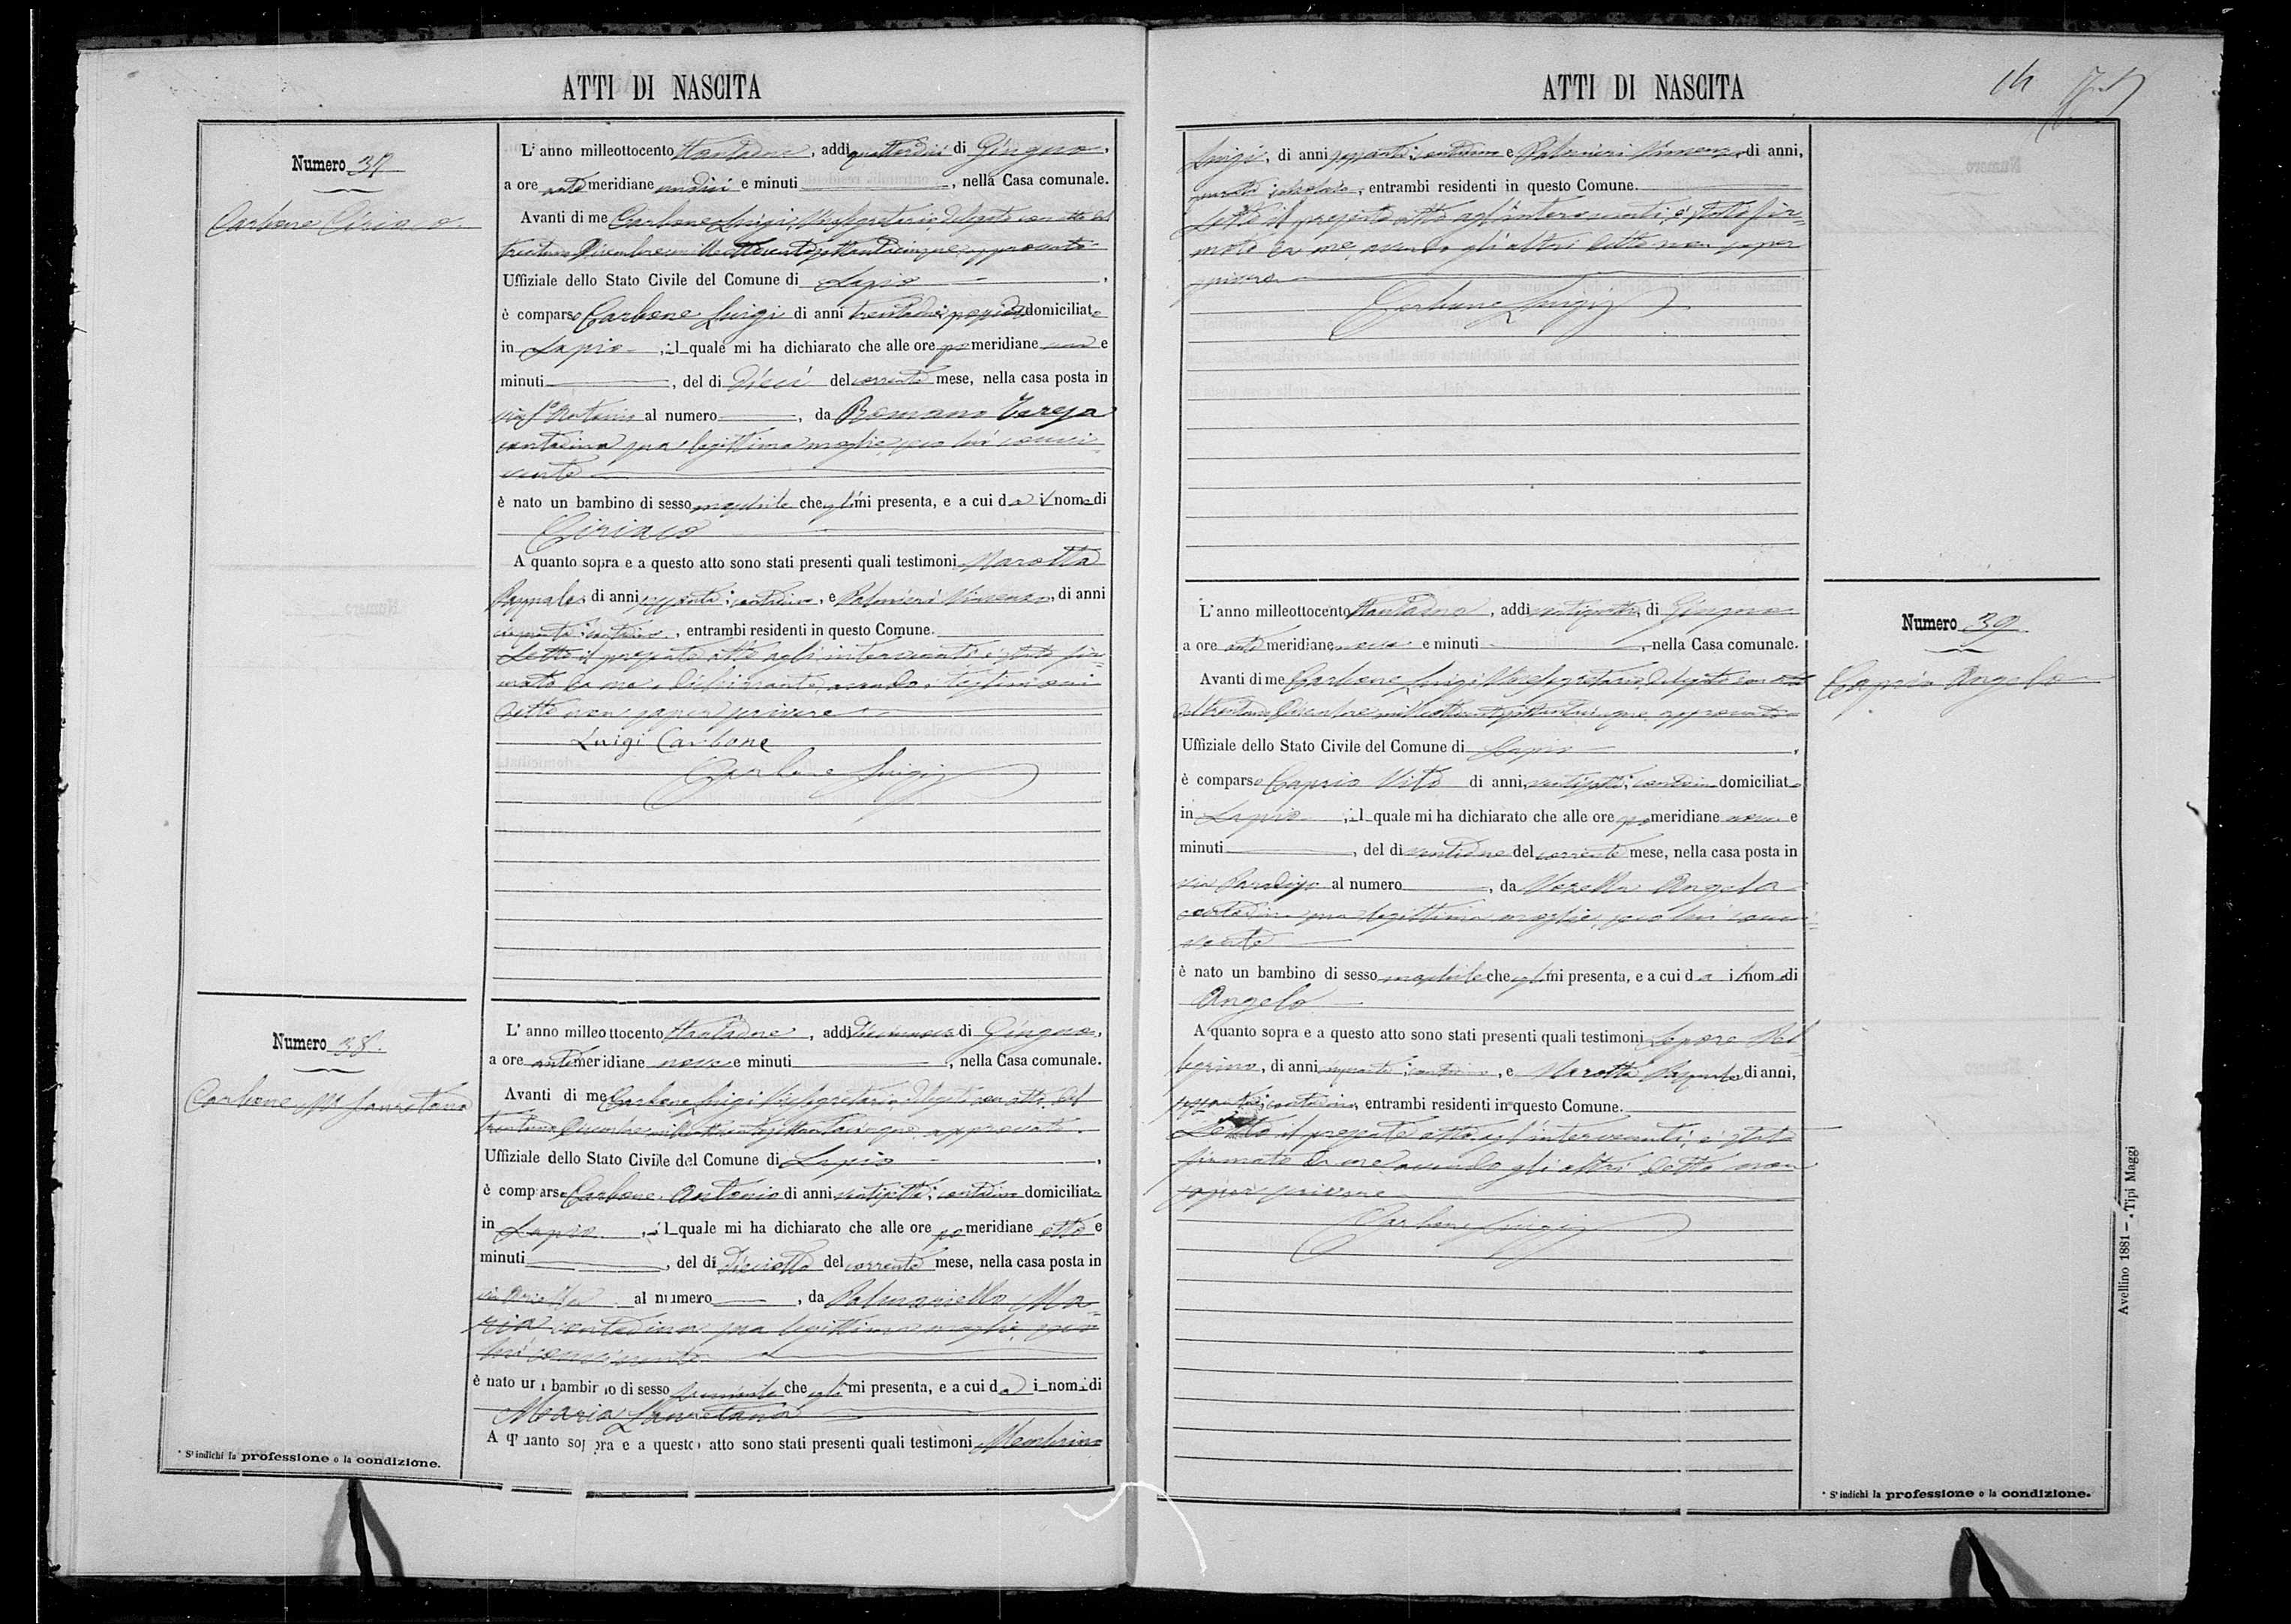 ATTI DI NASCITA
Numero 37
Carbone Ciriaco
L'anno milleottocento ottantadue, addì quattordici di Giugno,
a ore antemeridiane undici e minuti, nella Casa comunale.
Avanti di me Carbone Luigi, Vicesegretario, delegato con atto del
trentuno Dicembre milleottocentosettantacinque, approvato
Uffiziale dello Stato Civile del Comune di Lapio,
è comparso Carbone Luigi di anni domiciliato
in Lapio, il quale mi ha dichiarato che alle ore pomeridiane una e
minuti, del dì dieci del corrente mese, nella casa posta in
via al numero, da Romano Teresa
contadina sua legittima moglie, seco lui convi-
vente
è nato un bambino di sesso maschile che egli mi presenta, e a cui dà il nome di
Ciriaco
A quanto sopra e a questo atto sono stati presenti quali testimoni Marotta
Pasquale, di anni sessanta, contadino, e Palmieri Vincenzo, di anni
contadino, entrambi residenti in questo Comune.
Letto il presente atto agli intervenuti è stato fir-
mato da me e dichiarante, avendo i testimoni
detto non saper scrivere
Luigi Carbone
Carbone Luigi
Numero 38.
Carbone Ma Lauretana
L'anno milleottocento ottantadue, addì diciannove di Giugno,
a ore antemeridiane nove e minuti, nella Casa comunale.
Avanti di me Carbone Luigi Vicesegretario, delegato con atto del
trentuno Dicembre milleottocentosettantacinque, approvato
Uffiziale dello Stato Civile del Comune di Lapio,
è comparso Carbone Antonio di anni ventisette, contadino domiciliato
in Lapio, il quale mi ha dichiarato che alle ore pomeridiane otto e
minuti, del dì diciotto del corrente mese, nella casa posta in
via al numero, da Palmariello Ma-
ria contadina sua legittima moglie, seco
lui convivente
è nato un bambino di sesso femminile che egli mi presenta, e a cui dà i nomi di
Maria Lauretana
A quanto sopra e a questo atto sono stati presenti quali testimoni
* S'indichi la professione o la condizione.
ATTI DI NASCITA
14
Luigi, di anni sessanta, contadino e Palmieri Vincenzo, di anni,
entrambi residenti in questo Comune.
Letto il presente atto agl'intervenuti, è stato fir-
mato da me, avendo gli altri detto non saper
scrivere
Carbone Luigi
L'anno milleottocento ottantadue, addì di Giugno
a ore antemeridiane nove e minuti, nella Casa comunale.
Avanti di me Carbone Luigi Vicesegretario, delegato con atto
del trentuno Dicembre milleottocentosettantacinque, approvato
Uffiziale dello Stato Civile del Comune di Lapio,
è comparso Caprio Vito di anni ventisette, contadino domiciliato
in Lapio, il quale mi ha dichiarato che alle ore pomeridiane nove e
minuti, del dì ventidue del corrente mese, nella casa posta in
via Paradiso al numero, da Angela
contadina sua legittima moglie, seco lui convi-
vente
è nato un bambino di sesso maschile che egli mi presenta, e a cui dà il nome di
Angelo
A quanto sopra e a questo atto sono stati presenti quali testimoni Lepore Pel-
legrino, di anni, contadino, e Marotta Pasquale, di anni,
sessanta, contadino, entrambi residenti in questo Comune.
Letto il presente atto agl'intervenuti, è stato
firmato da me avendo gli altri detto non
saper scrivere
Carbone Luigi
Numero 39
Caprio Angelo
Avellino 1881 - Tipi Maggi
* S'indichi la professione o la condizione.